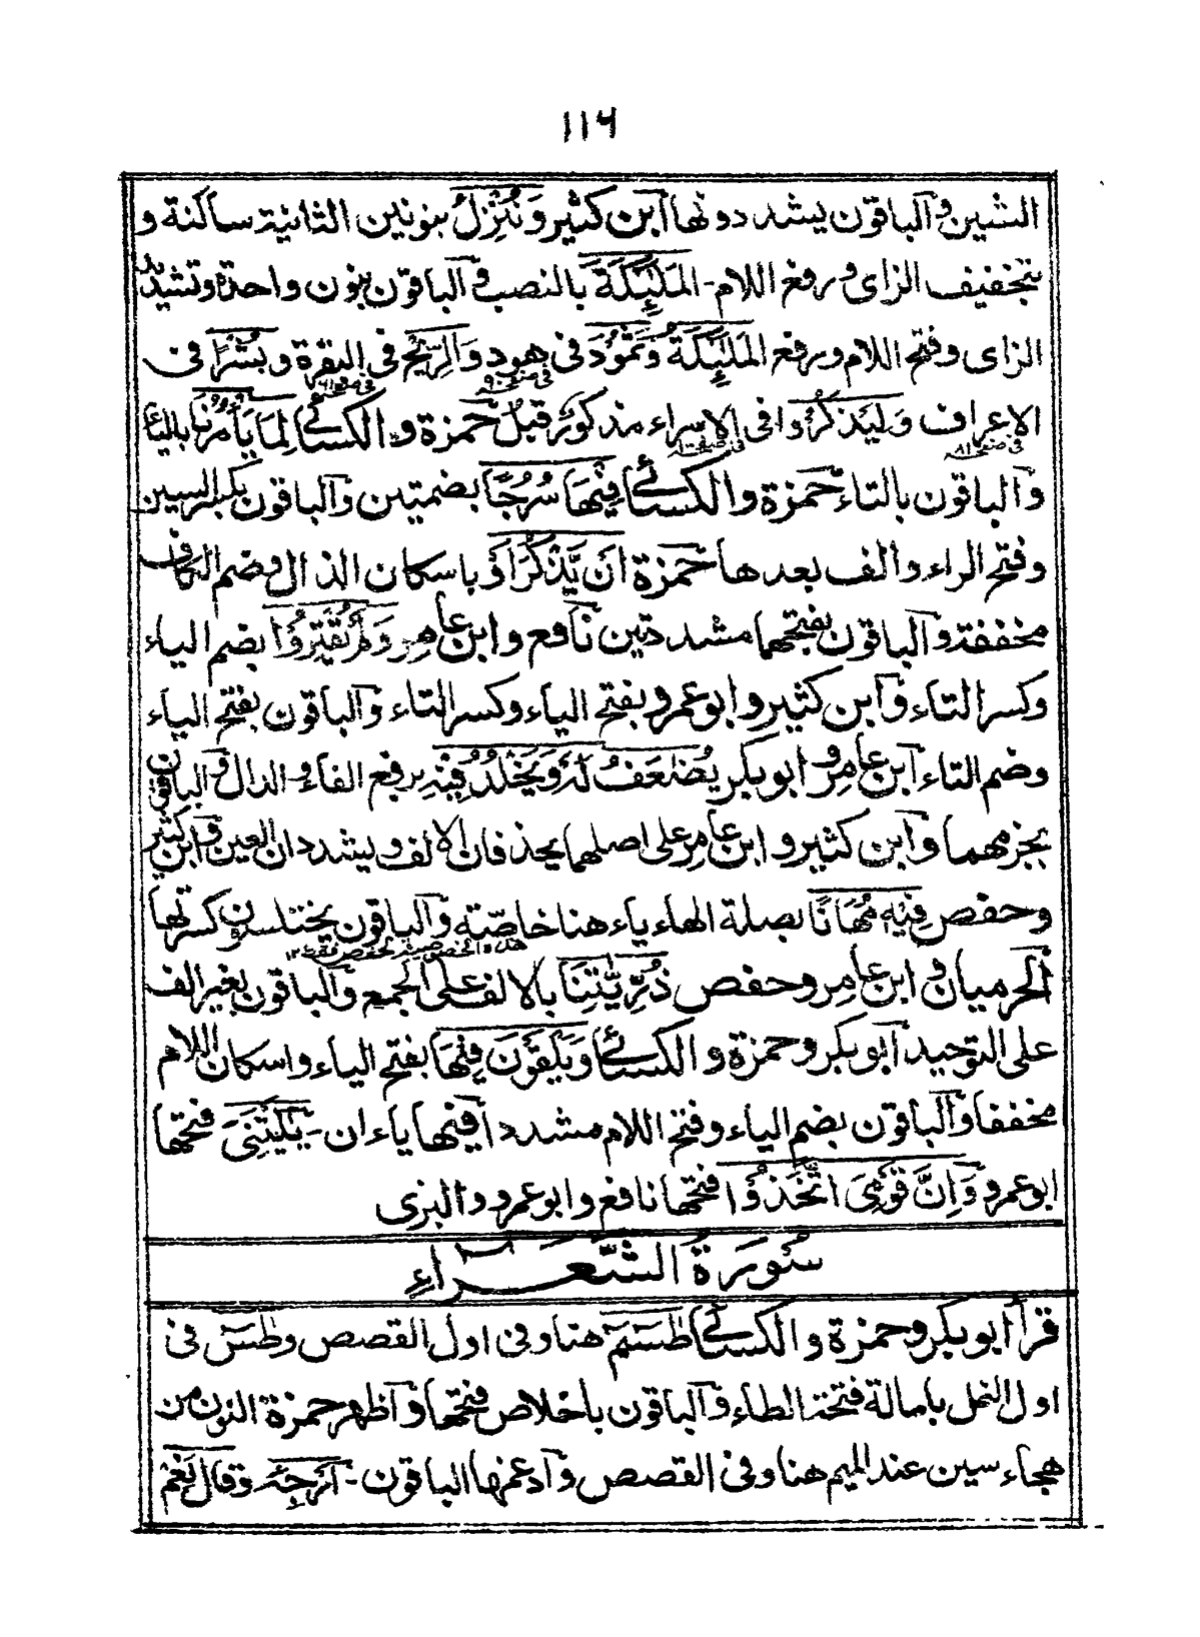 ۱۱۴
الشين والباقون يشددونها ابن كثير وَنُنْزِلُ بنونين الثانية ساكنة و
بتخفيف الزاى ورفع اللام - المَلٰٓئِكَةَ بالنصب والباقون بنون واحدة وتشديد
الزاى وفتح اللام ورفع المَلٰٓئِكَةُ وَثَمُوْدَ فى هود وَالرِّيْحَ فى البقرة وبُشْرًا فى
فى صفحه ٩٠ فى صفحه ٦١
الاعراف وَلِيَذَّكَّرُوا فى الاسراء مذكور قبل حمزة والكسائى لِمَا يَأْمُرُنَا بالياء
فى صفحه ٨١
والباقون بالتاء حمزة والكسائى فِيْهَا سُرُجًا بضمتين والباقون بكسر السين
وفتح الراء والف بعدها حمزة اَنْ يَّذْكُرَ اَوْ باسكان الذال وضم الكاف
مخففة والباقون بفتحهما مشددتين نافع وابن عامر وَلَمْ يُقْتِرُوْا بضم الياء
وكسر التاء وابن كثير وابو عمرو بفتح الياء وكسر التاء والباقون بفتح الياء
وضم التاء ابن عامر وابو بكر يُضٰعَفُ لَهٗ وَيَخْلُدُ فِيْهِ برفع الفاء والدال والباقون
بجزمهما وابن كثير وابن عامر على اصلهما يحذفان الالف ويشددان العين وابن كثير
وحفص فِيْهٖ مُهَانًا بصلة الهاء ياء هنا خاصّة والباقون يختلسون كسرتها
الحرميان وابن عامر وحفص ذُرِّيّٰتِنَا بالالف على الجمع والباقون بغير الف
على التوحيد ابو بكر وحمزة والكسائى وَيَلْقَوْنَ فِيْهَا بفتح الياء واسكان اللام
مخففا والباقون بضم الياء وفتح اللام مشددا فيها ياءان - يٰلَيْتَنِىَ فتحها
ابو عمرو وَاِنَّ قَوْمِىَ اتَّخَذُوْا فتحها نافع وابو عمرو والبزى
سُوْرَةُ الشُّعَرَاءِ
قرأ ابو بكر وحمزة والكسائى طٰسٓمٓ هنا وفى اول القصص وطٰسٓ فى
اول النمل بامالة فتحة الطاء والباقون باخلاص فتحها واظهر حمزة النون من
هجاء سين عند الميم هنا وفى القصص وادغمها الباقون - اَرْجِهْ وقَالَ نَعَمْ